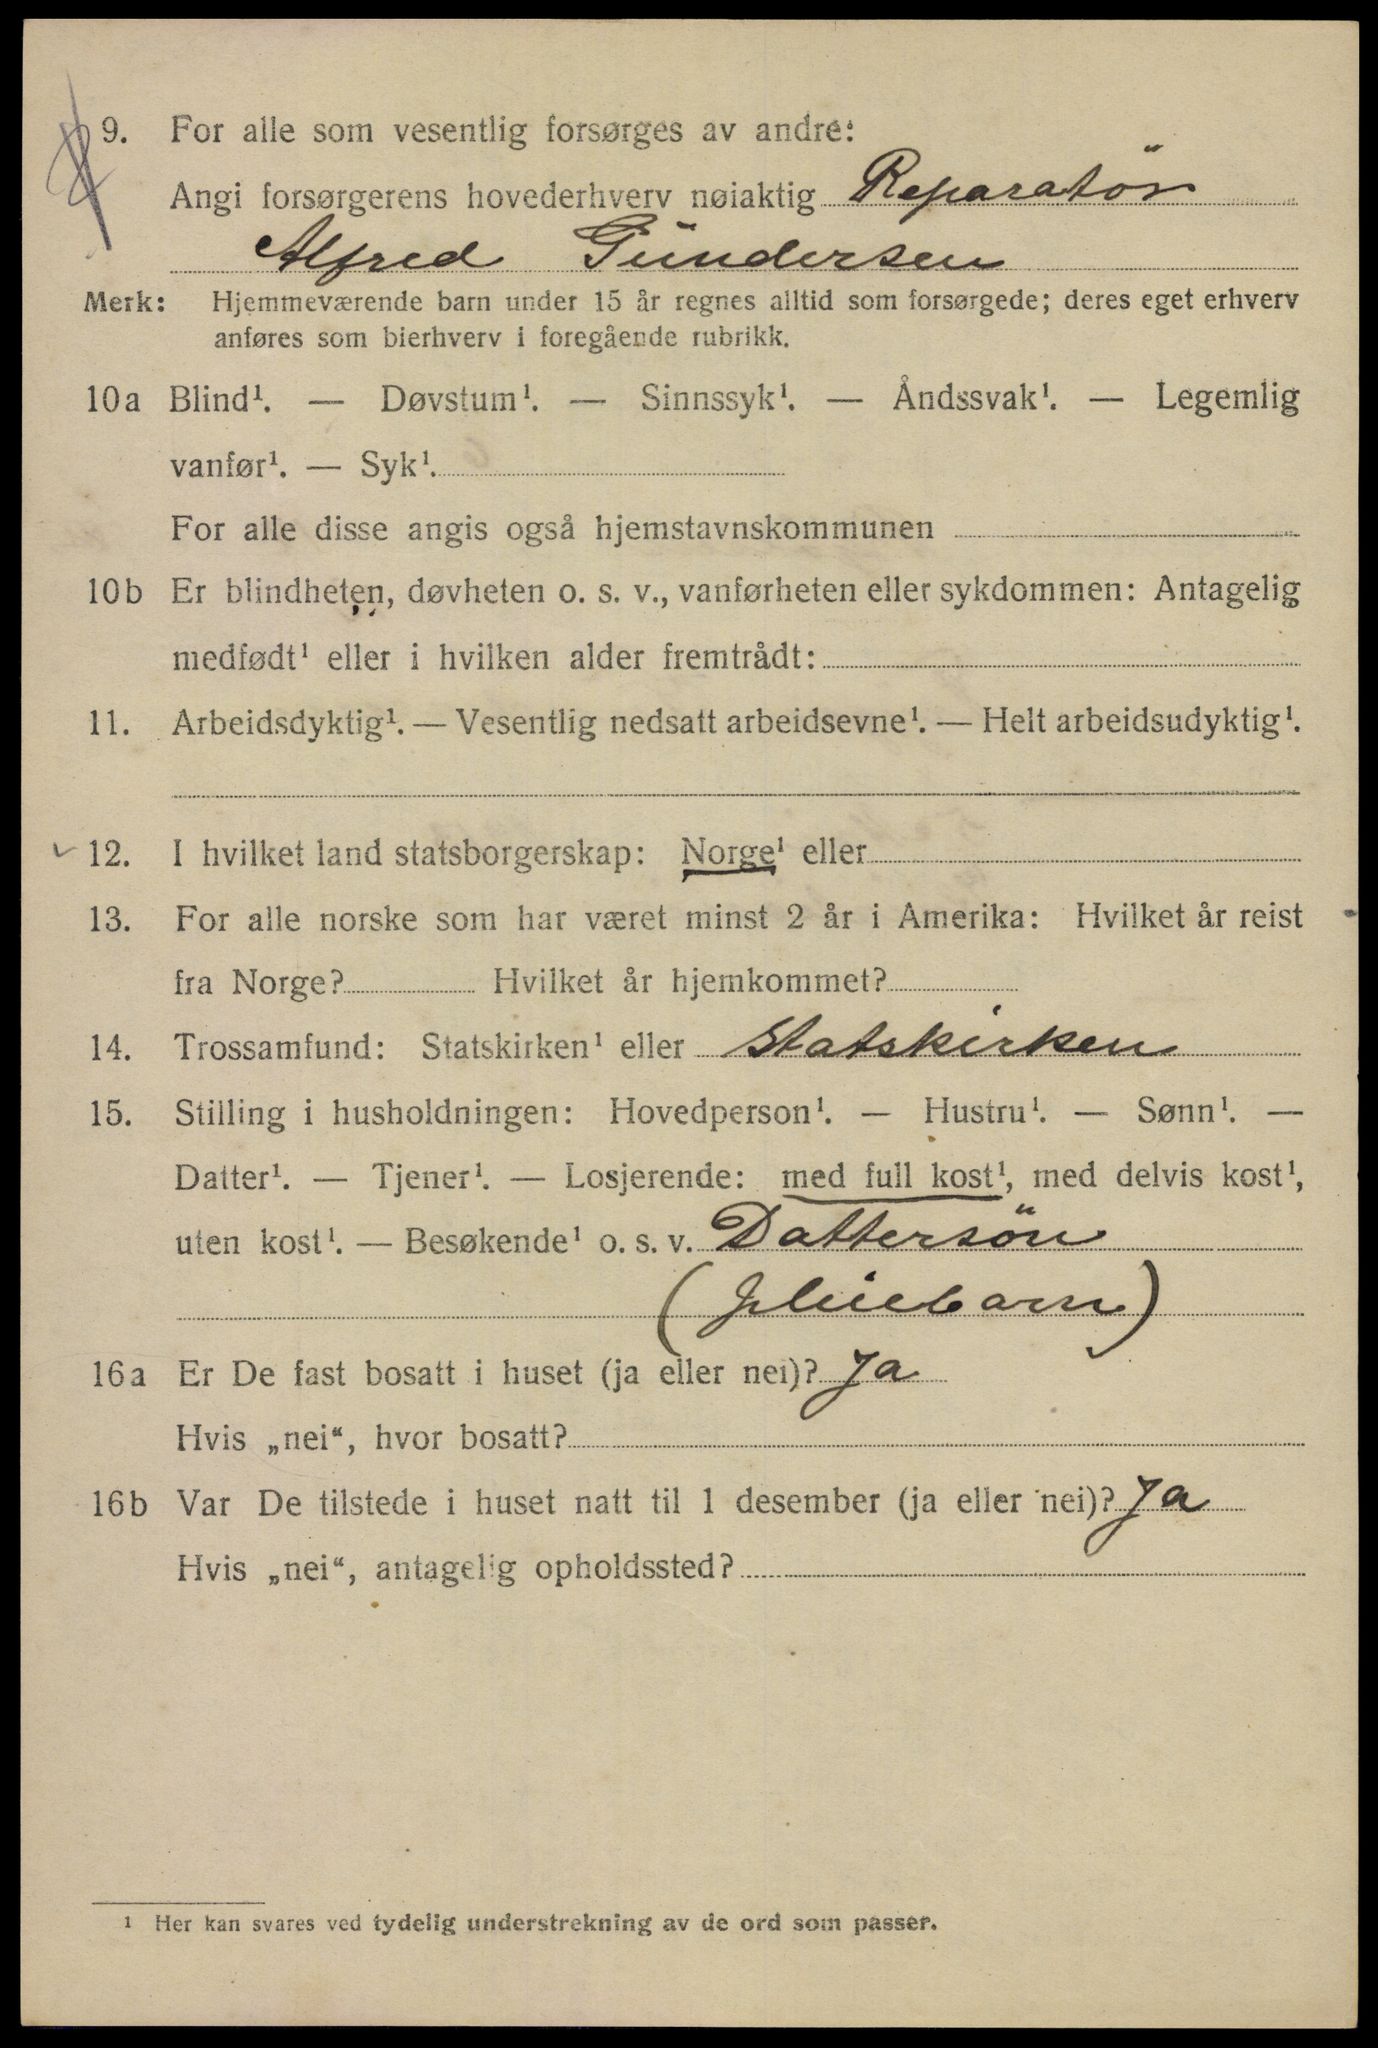 9. For alle som vesentlig forsørges av andre:
Angi forsørgerens hovederhverv nøiaktig Reparatör
Alfred Gundersen
Merk: Hjemmeværende barn under 15 år regnes alltid som forsørgede; deres eget erhverv
anføres som bierhverv i foregående rubrikk.
10a Blind¹. — Døvstum¹. — Sinnssyk¹. — Åndssvak¹. — Legemlig
vanfør¹. — Syk¹.
For alle disse angis også hjemstavnskommunen
10b Er blindheten, døvheten o. s. v., vanførheten eller sykdommen: Antagelig
medfødt¹ eller i hvilken alder fremtrådt:
11. Arbeidsdyktig¹. — Vesentlig nedsatt arbeidsevne¹. — Helt arbeidsudyktig¹.
12. I hvilket land statsborgerskap: Norge¹ eller
13. For alle norske som har været minst 2 år i Amerika: Hvilket år reist
fra Norge? Hvilket år hjemkommet?
14. Trossamfund: Statskirken¹ eller Statskirken
15. Stilling i husholdningen: Hovedperson¹. — Hustru¹. — Sønn¹. —
Datter¹. — Tjener¹. — Losjerende: med full kost¹, med delvis kost¹,
uten kost¹. — Besøkende¹ o. s. v. Dattersön
16a Er De fast bosatt i huset (ja eller nei)? Ja
Hvis „nei“, hvor bosatt?
16b Var De tilstede i huset natt til 1 desember (ja eller nei)? Ja
Hvis „nei“, antagelig opholdssted?
¹ Her kan svares ved tydelig understrekning av de ord som passer.